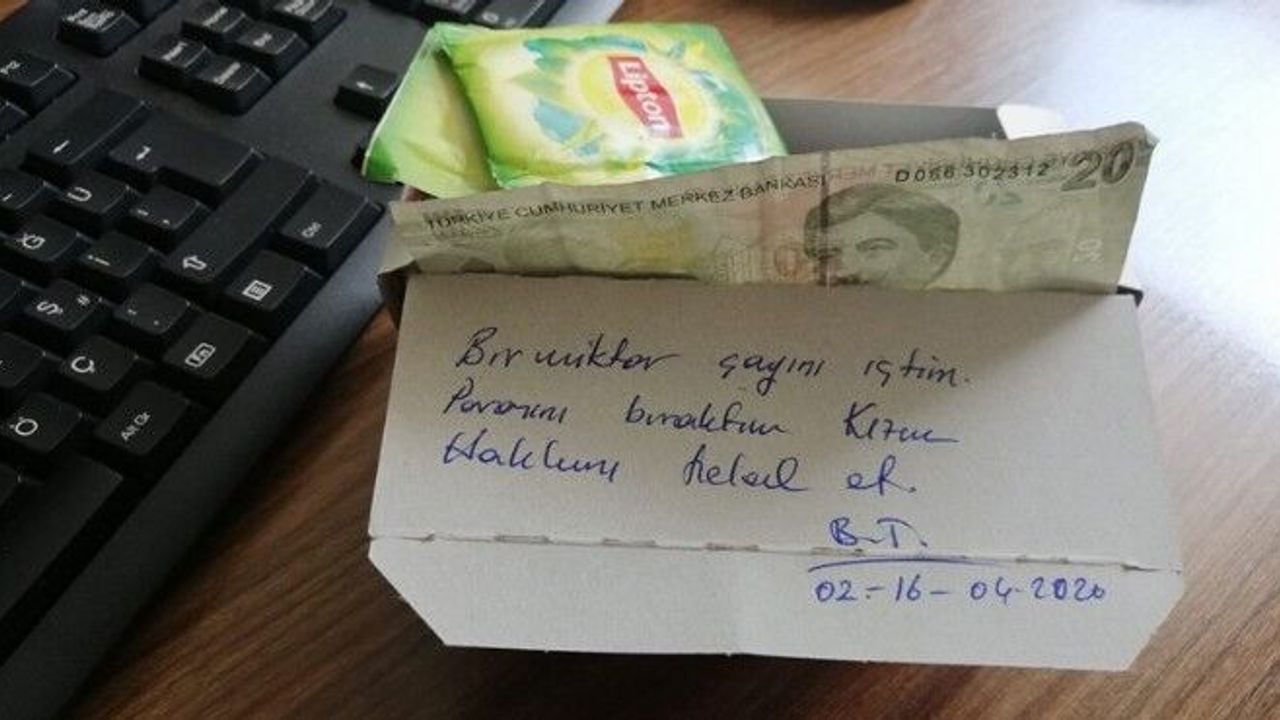 Lipton
TÜRKİYE CUMHURİYET MERKEZ BANKASI
D086 302312 20
Bir miktar çayını içtim.
Parasını bıraktım Kızım
Hakkını helal et.
B.T.
02-16-04.2020
Alt Gr
Ctrl
Fn
Ö
Ç
Ş
İ
Ğ
Ü